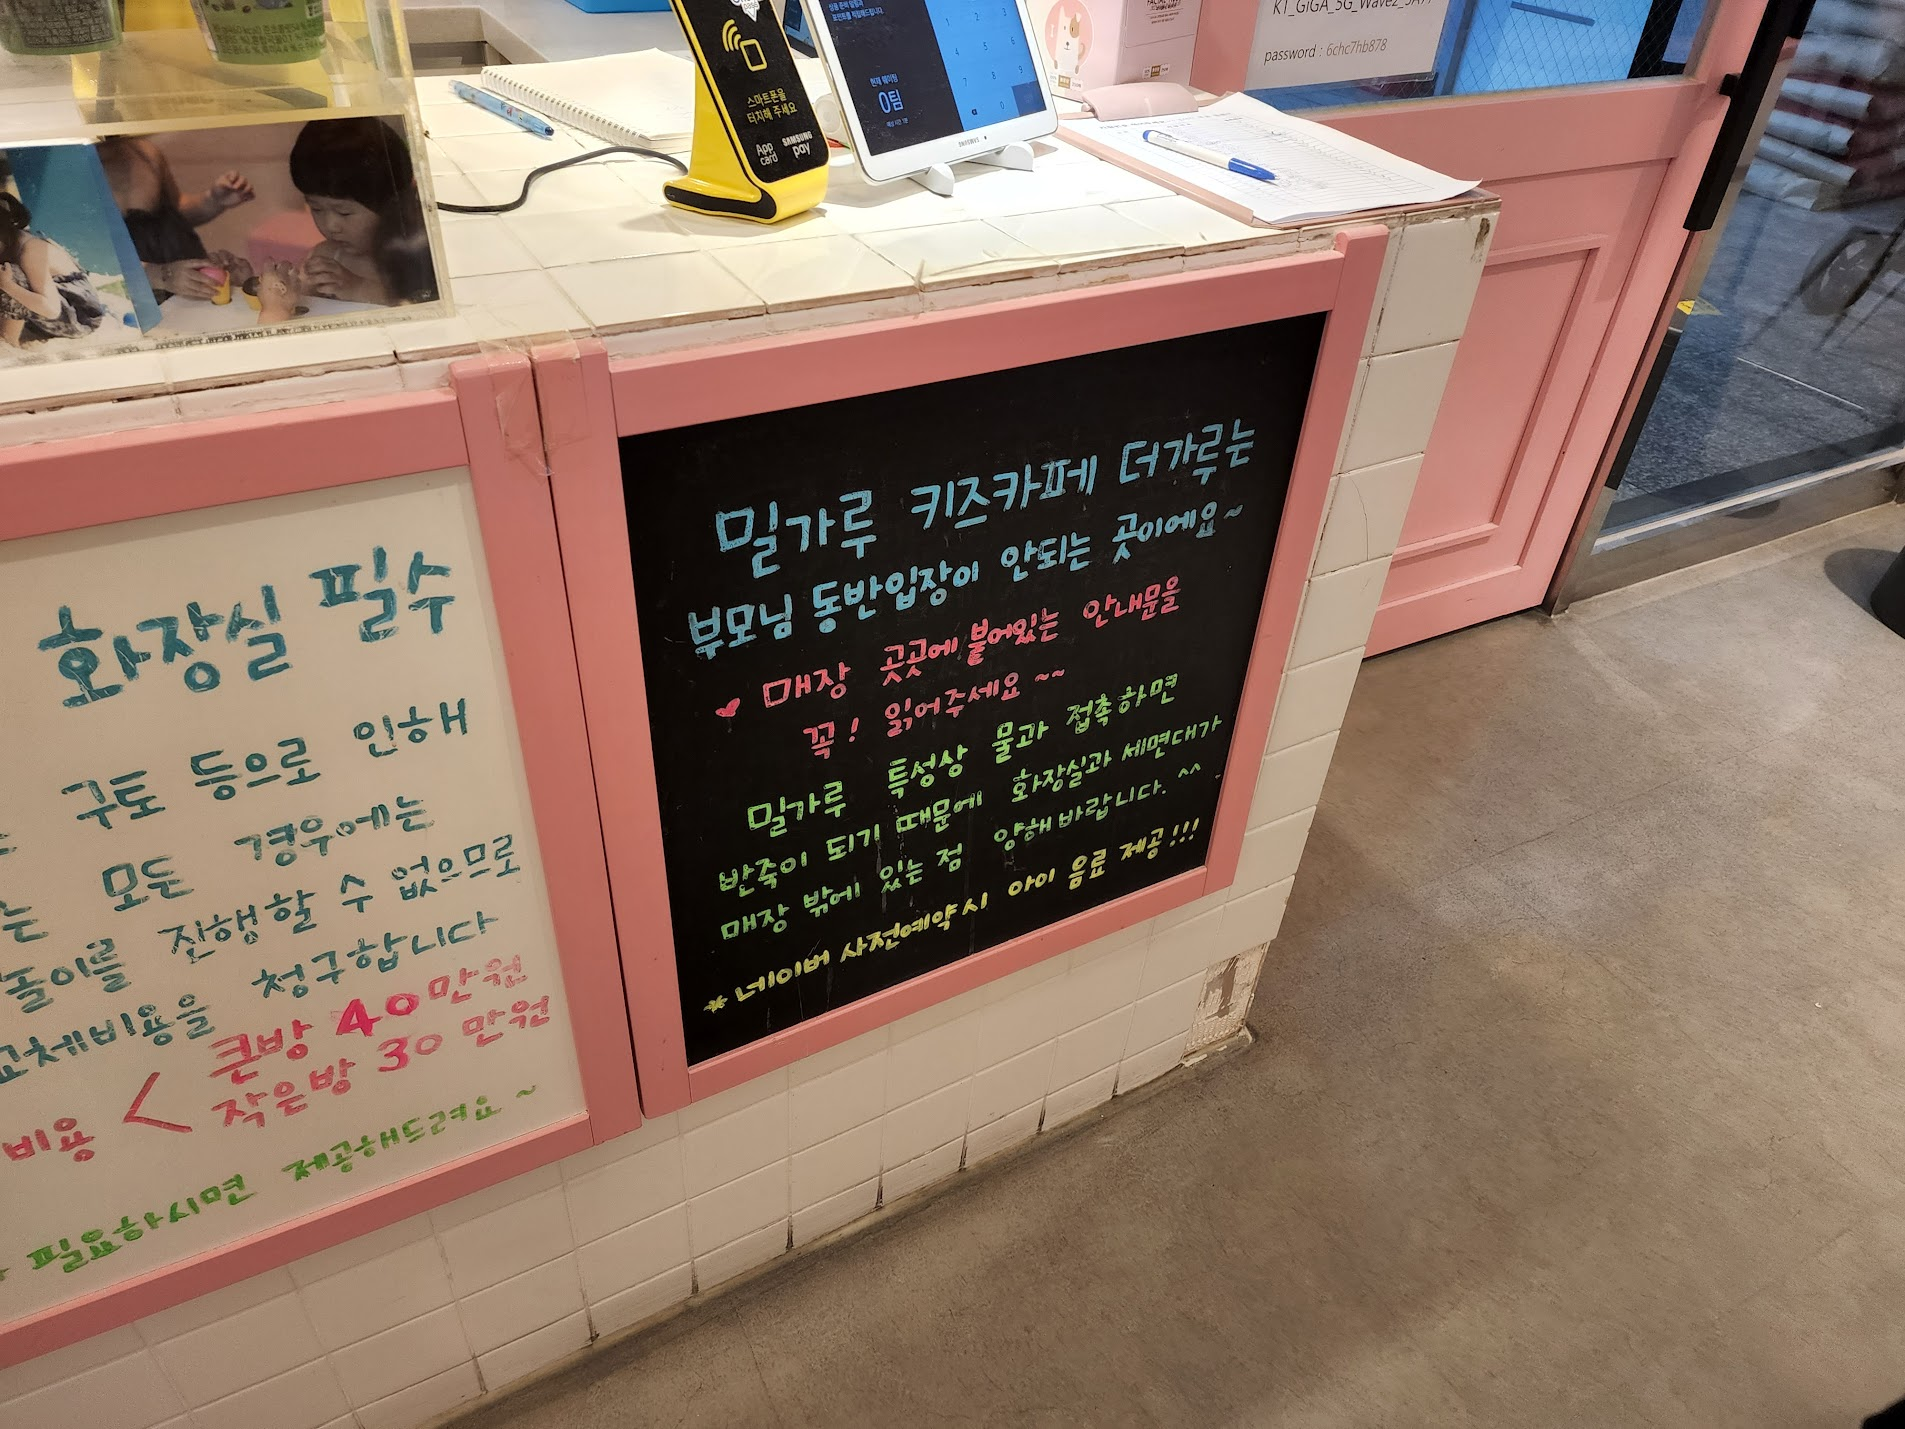 스마트폰을
터치해 주세요
App
card
SAMSUNG
pay
현재 웨이팅
0팀
SAMSUNG
password : 6chc7hb878
화장실 필수
구토 등으로 인해
모든 경우에는
놀이를 진행할 수 없으므로
교체비용을 청구합니다
비용 < 큰방 40만원
작은방 30만원
필요하시면 제공해드려요~
밀가루 키즈카페 더가루는
부모님 동반입장이 안되는 곳이에요~
♥ 매장 곳곳에 붙어있는 안내문을
꼭! 읽어주세요 ~~
밀가루 특성상 물과 접촉하면
반죽이 되기 때문에 화장실과 세면대가
매장 밖에 있는 점 양해바랍니다. ^^
* 네이버 사전예약시 아이 음료 제공!!!